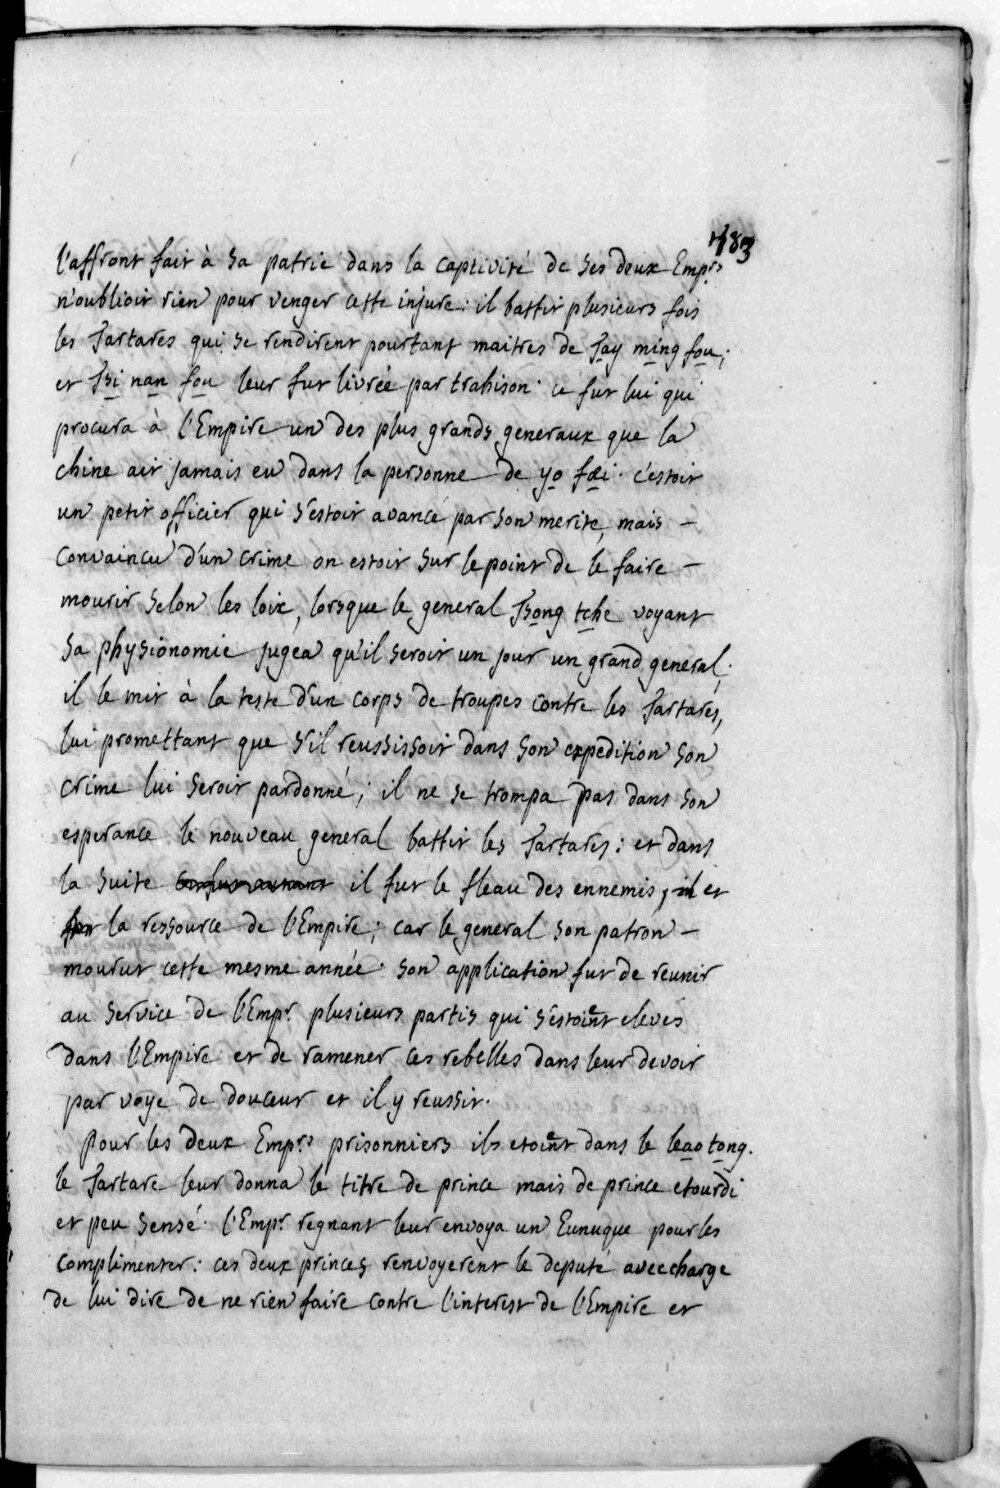 183
l'affront fait à sa patrie dans la captivité de ses deux Emp.rs
n'oublioit rien pour venger cette injure: il battit plusieurs fois
les Tartares qui se rendirent pourtant maitres de Tay ming fou;
et Tsi nan fou leur fut livrée par trahison. ce fut lui qui
procura à l'Empire un des plus grands generaux que la
chine ait jamais eu dans la personne de yo fæi. c'estoit
un petit officier qui s'estoit avancé par son merite, mais –
convaincu d'un crime on estoit sur le point de le faire –
mourir selon les loix, lorsque le general Tsong tche voyant
sa physionomie jugea qu'il seroit un jour un grand general;
il le mit à la teste d'un corps de troupes contre les Tartares,
lui promettant que s'il reussissoit dans son expedition son
crime lui seroit pardonné; il ne se trompa pas dans son
esperance le nouveau general battit les Tartares: et dans
la suite il fut le fleau des ennemis, et
la ressource de l'Empire; car le general son patron –
mourut cette mesme année. son application fut de reunir
au service de l'Emp.r plusieurs partis qui s'estoient elevés
dans l'Empire et de ramener ces rebelles dans leur devoir
par voye de douceur et il y reussit.
Pour les deux Emp.rs prisonniers ils etoient dans le leao tong.
le Tartare leur donna le titre de prince mais de prince etourdi
et peu sensé. l'Emp.r regnant leur envoya un Eunuque pour les
complimenter: ces deux princes renvoyerent le deputé avec charge
de lui dire de ne rien faire contre l'interest de l'Empire et